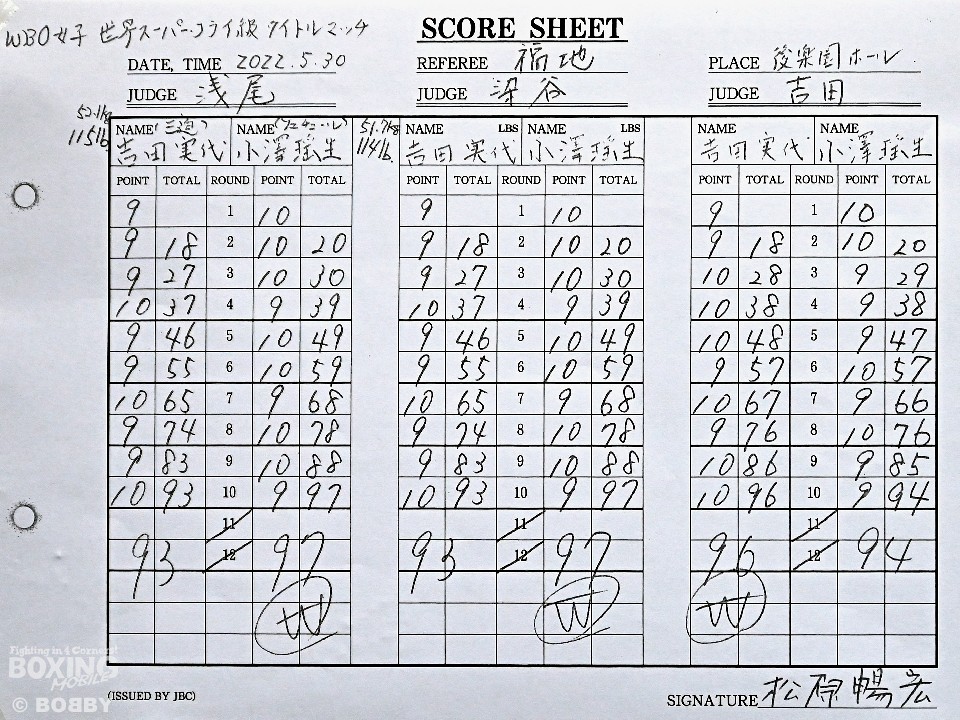 WBO女子 世界スーパー・フライ級 タイトルマッチ
SCORE SHEET
DATE, TIME 2022.5.30 REFEREE 福地 PLACE 後楽園ホール
JUDGE 浅尾 JUDGE 染谷 JUDGE 吉田
52.1kg 115lb 51.7kg 114lb.
NAME (三迫) NAME NAME LBS NAME LBS NAME NAME
吉田実代 小澤瑶生 吉田実代 小澤瑶生 吉田実代 小澤瑶生
POINT TOTAL ROUND POINT TOTAL POINT TOTAL ROUND POINT TOTAL POINT TOTAL ROUND POINT TOTAL
9 1 10 9 1 10 9 1 10
9 18 2 10 20 9 18 2 10 20 9 18 2 10 20
9 27 3 10 30 9 27 3 10 30 10 28 3 9 29
10 37 4 9 39 10 37 4 9 39 10 38 4 9 38
9 46 5 10 49 9 46 5 10 49 10 48 5 9 47
9 55 6 10 59 9 55 6 10 59 9 57 6 10 57
10 65 7 9 68 10 65 7 9 68 10 67 7 9 66
9 74 8 10 78 9 74 8 10 78 9 76 8 10 76
9 83 9 10 88 9 83 9 10 88 10 86 9 9 85
10 93 10 9 97 10 93 10 9 97 10 96 10 9 94
11 11 11
93 12 97 93 12 97 96 12 94
W W W
Fighting in 4 Corners!
BOXING
MOBILE
© BOBBY
(ISSUED BY JBC)
SIGNATURE 松原暢宏